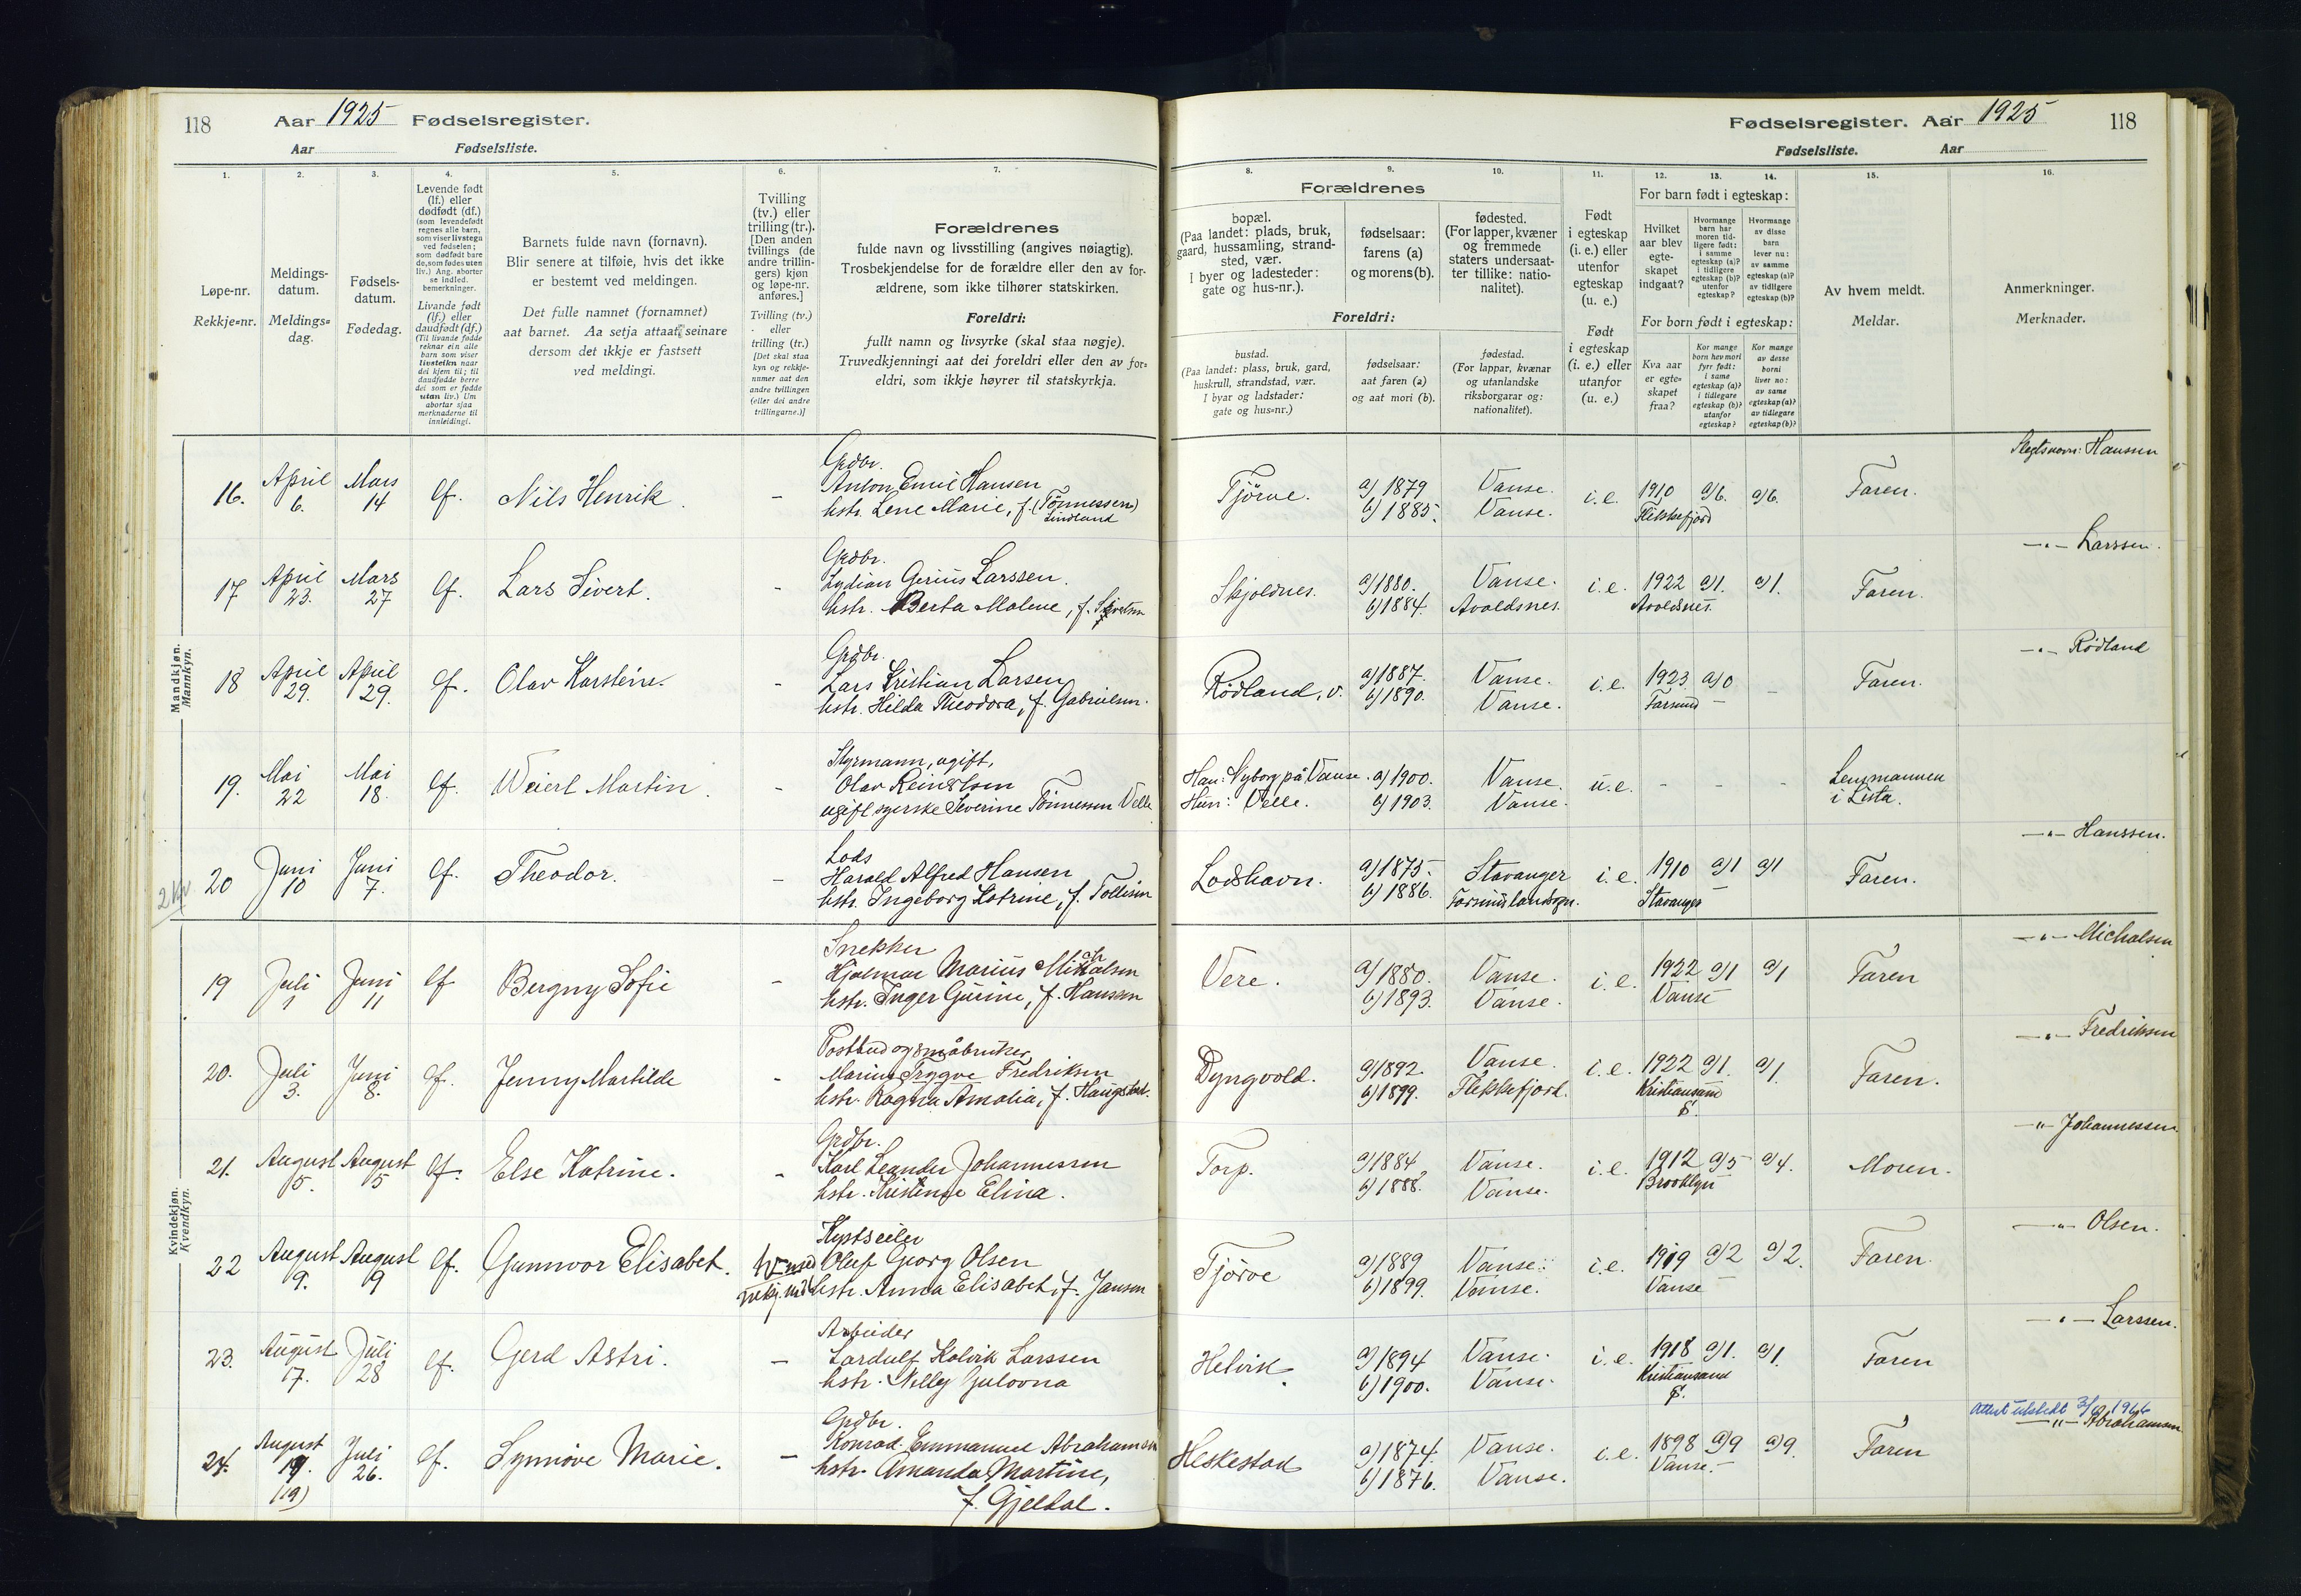 118
Aar 1925 Fødselsregister.
Aar Fødselsliste.
Fødselsregister. Aar 1925
118
Fødselsliste. Aar
1.
2.
3.
4.
5.
6.
7.
8.
9.
10.
11.
12.
13.
14.
15.
16.
Løpe-nr.
Rekkje=nr.
Meldings-
datum.
Meldings=
dag.
Fødsels-
datum.
Fødedag.
Levende født
(lf.) eller
dødfødt (df.)
(som levendefødt
regnes alle barn,
som viser livstegn
ved fødselen;
som dødfødt bare
de, som fødes uten
liv.) Ang. aborter
se indled.
bemerkninger.
Livande født
(lf.) eller
daudfødt (df.)
(Til livande fødde
reknar ein alle
barn som viser
livsteikn naar
dei kjem til; til
daudfødde berre
dei som er fødde
utan liv.) Um
abortar sjaa
merknaderne til
innleidingi.
Barnets fulde navn (fornavn).
Blir senere at tilføie, hvis det ikke
er bestemt ved meldingen.
Det fulle namnet (fornamnet)
aat barnet. Aa setja attaat seinare
dersom det ikkje er fastsett
ved meldingi.
Tvilling
(tv.) eller
trilling (tr.).
[Den anden
tvillings (de
andre trillin-
gers) kjøn
og løpe-nr.
anføres.]
Tvilling (tv.)
eller
trilling (tr.)
[Det skal staa
kyn og rekkje-
nummer aat den
andre tvillingen
(eller dei andre
trillingarne.)]
Forældrenes
fulde navn og livsstilling (angives nøiagtig).
Trosbekjendelse for de forældre eller den av for-
ældrene, som ikke tilhører statskirken.
Foreldri:
fullt namn og livsyrke (skal staa nøgje).
Truvedkjenningi aat dei foreldri eller den av for=
eldri, som ikkje høyrer til statskyrkja.
Forældrenes
bopæl.
(Paa landet: plads, bruk,
gaard, hussamling, strand-
sted, vær.
I byer og ladesteder:
gate og hus-nr.).
fødselsaar:
farens (a)
og morens (b).
fødested.
(For lapper, kvæner
og fremmede
staters undersaat-
ter tillike: natio-
nalitet).
Foreldri:
bustad.
(Paa landet: plass, bruk, gard,
huskrull, strandstad, vær.
I byar og ladstader:
gate og hus=nr.)
fødselsaar:
aat faren (a)
og aat mori (b).
fødestad.
(For lappar, kvænar
og utanlandske
riksborgarar og:
nationalitet).
Født
i egteskap
(i. e.) eller
utenfor
egteskap
(u. e.)
Født
i egteskap
(i. e.) eller
utanfor
(u. e.)
For barn født i egteskap:
Hvilket
aar blev
egte-
skapet
indgaat?
Hvormange
barn har
moren tid-
ligere født:
i samme
egteskap (a)?
i tidligere
egteskap (b)?
utenfor
egteskap?
Hvormange
av disse
barn
lever nu:
av samme
egteskap (a)?
av tidligere
egteskap (b)?
For born født i egteskap:
Kva aar
er egte=
skapet
fraa?
Kor mange
born hev mori
fyrr født:
i same
egteskap (a)?
i tidlegare
egteskap (b)?
utanfor
egteskap?
Kor mange
av desse
borni
liver no:
av same
egteskap (a)?
av tidlegare
egteskap (b)?
Av hvem meldt.
Meldar.
Anmerkninger.
Merknader.
Mandkjøn.
Mannkyn.
16. April 6. Mars 14 lf. Nils Henrik. -
Grdbr.
Anton Emil Hansen
hstr. Lene Marie, f. (Tønnessen)
Lindland
Tjørve. a) 1879 Vanse. i.e. 1910 a/6. a/6. Faren. Slegtsnavn: Hansen
b) 1885. Vanse. Flekkefjord
17 April 23. Mars 27 lf. Lars Sivert. -
Grdbr.
Lydian Gerius Larssen.
hstr. Berta Malene, f.
Skjoldnes. a) 1880. Vanse. i.e. 1922 a/1. a/1. Faren. -"- Larssen.
b) 1884. Avaldsnes. Avaldsnes.
18 April 29. April 29. lf. Olav Karstein. -
Grdbr.
Lars Kristian Larsen
hstr. Hilda Theodora, f. Gabrielsen.
Rødland, v. a) 1887. Vanse. i.e. 1923 a/0 - Faren. -"- Rødland
b) 1890. Vanse. Farsund -
19. Mai 22 Mai 18. lf. Martin. -
Styrmann, ugift,
Olav Reinertsen
ugift syerske Severine Tønnessen Velle
Han: Nyborg på Vanse. a) 1900. Vanse. u.e. - - - Lensmannen
Hun: Velle. b) 1903. Vanse. i Lista.
2 kv
20 Juni 10 Juni 7. lf. Theodor. -
Lods
Harald Alfred Hansen
hstr. Ingeborg Katrine, f. Tollisen
Lodshavn. a) 1875. Stavanger i.e. 1910 a/1 a/1 Faren. -"- Hanssen.
b) 1886. Stavanger -
Kvindekjøn.
Kvendkyn.
19 Juli 1 Juni 11 lf Bergny Sofie -
Snekker
Hjalmar Marius Mikalsen
hstr. Inger Gurine, f. Hansen
Vere. a) 1880. Vanse. i.e. 1922 a/1 a/1 Faren -"- Michalsen
b) 1893. Vanse. Vanse
20. Juli 3. Juni 8. lf. Jenny Martilde -
Postbud og småbruker
Marius Trygve Fredriksen
hstr. Ragna Amalia, f. Haugstad.
Dyngvold. a) 1892. Vanse. i.e. 1922 a/1. a/1. Faren. -"- Fredriksen
b) 1899. Flekkefjord. Kristiansand
S.
21. August 5. August 5 lf. Else Katrine. -
Grdbr.
Karl Leander Johannessen
hstr. Kristense Elina.
Torp. a) 1884 Vanse. i.e. 1912 a/5 a/4. Moren. -"- Johannessen.
b) 1888. Vanse. Brooklyn
22 August 9. August 9 lf. Gunnvor Elisabet.
Kystseiler
Oluf Georg Olsen
hstr. Anna Elisabet, f. Jansen
Tjørve a) 1889 Vanse. i.e. 1919 a/2 a/2. Faren. -"- Olsen.
b) 1899. Vanse. Vanse -
23. August 17. Juli 28 lf. Gerd Astri. -
Arbeider
Lardulf Kolvik Larssen
hstr. Nelly Julovna
Helvik a) 1894 Vanse. i.e. 1918 a/1. a/1. Faren -"- Larssen.
b) 1900. Vanse. Kristiansand
S.
24. August 19. (19) Juli 26. lf. Synnøve Marie. -
Grdbr.
Konrad Emmanuel Abrahamsen
hstr. Amanda Martine,
f. Gjeldal.
Heskestad a) 1874. Vanse. i.e. 1898 a/9 a/9. Faren -"- Abrahamsen
b) 1876. Vanse. Vanse. -
Attest utstedt 1966